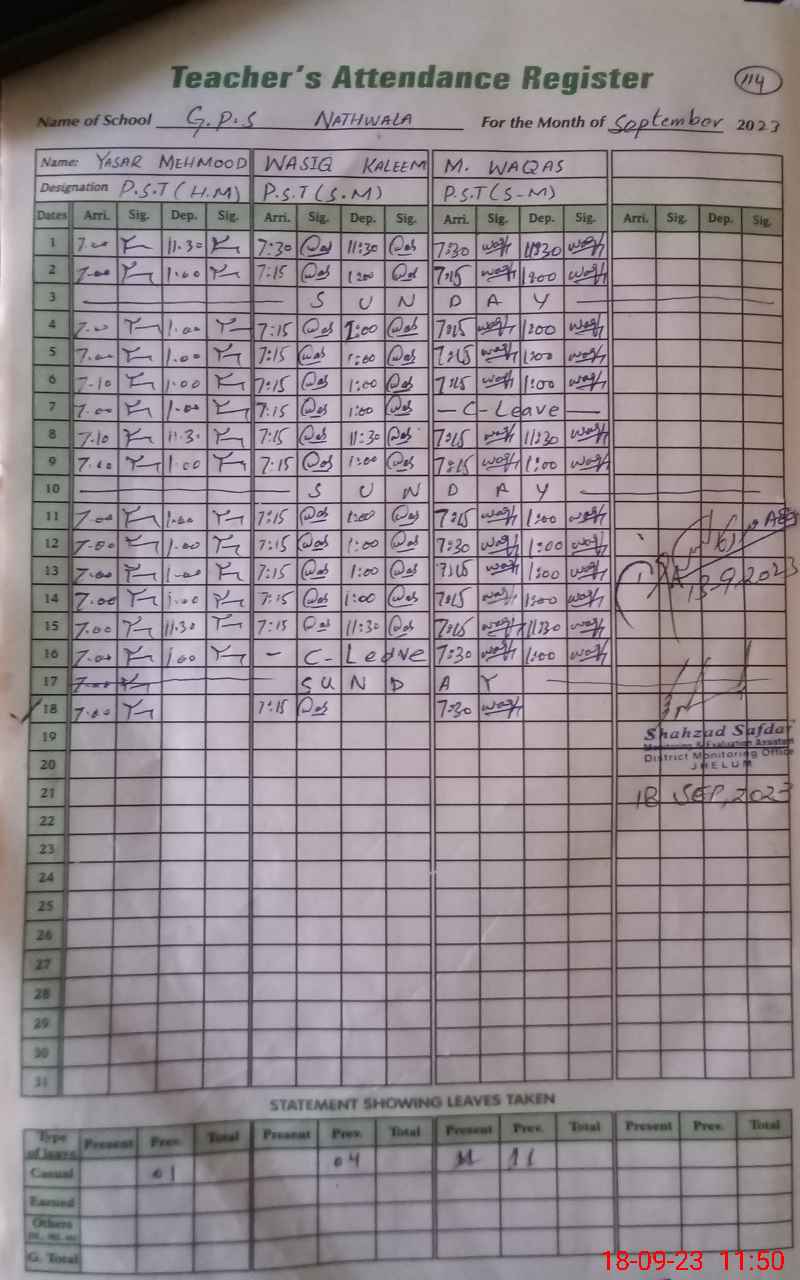 Teacher's Attendance Register 114
Name of School G.P.S NATHWALA For the Month of September 2023
Name: YASAR MEHMOOD WASIQ KALEEM M. WAQAS
Designation P.S.T (H.M) P.S.T (S.M) P.S.T (S-M)
Dates Arri. Sig. Dep. Sig. Arri. Sig. Dep. Sig. Arri. Sig. Dep. Sig. Arri. Sig. Dep. Sig.
1 7.00 11.30 7:30 11:30 7:30 11:30
2 7.00 1.00 7:15 1:00 7:15 1:00
3 S U N D A Y
4 7.00 1.00 7:15 1:00 7:15 1:00
5 7.00 1.00 7:15 1:00 7:15 1:00
6 7-10 1.00 7:15 1:00 7:15 1:00
7 7.00 1.00 7:15 1:00 - C- Leave
8 7.10 11.30 7:15 11:30 7:15 11:30
9 7.00 1.00 7:15 1:00 7:15 1:00
10 S U N D A Y
11 7.00 1.00 7:15 1:00 7:15 1:00
12 7.00 1.00 7:15 1:00 7:30 1:00
13 7.00 1.00 7:15 1:00 7:15 1:00
13-9-2023
14 7.00 1.00 7:15 1:00 7:15 1:00
15 7.00 11.30 7:15 11:30 7:15 11:30
16 7.00 1.00 - C- Leave 7:30 1:00
17 7.00 S U N D A Y
18 7.00 7:15 7:30
19 Shahzad Safdar
Monitoring & Evaluation Assistant
20 District Monitoring Office
JHELUM
21 18 SEP, 2023
22
23
24
25
26
27
28
29
30
31
STATEMENT SHOWING LEAVES TAKEN
Type of leave Present Prev. Total Present Prev. Total Present Prev. Total Present Prev. Total
Casual 01 04 11
Earned
Others
G. Total
18-09-23 11:50